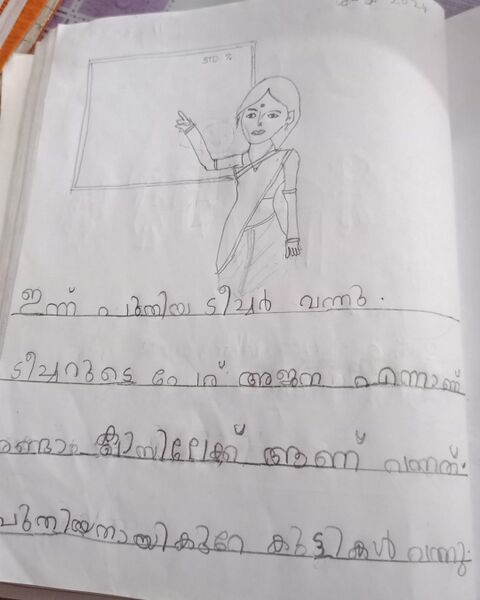 2024
STD
ഇന്ന് പുതിയ ടീച്ചർ വന്നു.
ടീച്ചറുടെ പേര് അജന എന്നാണ്
രണ്ടാം ക്ലാസിലേക്ക് ആണ് വന്നത്.
പുതിയതായി കുറേ കുട്ടികൾ വന്നു.